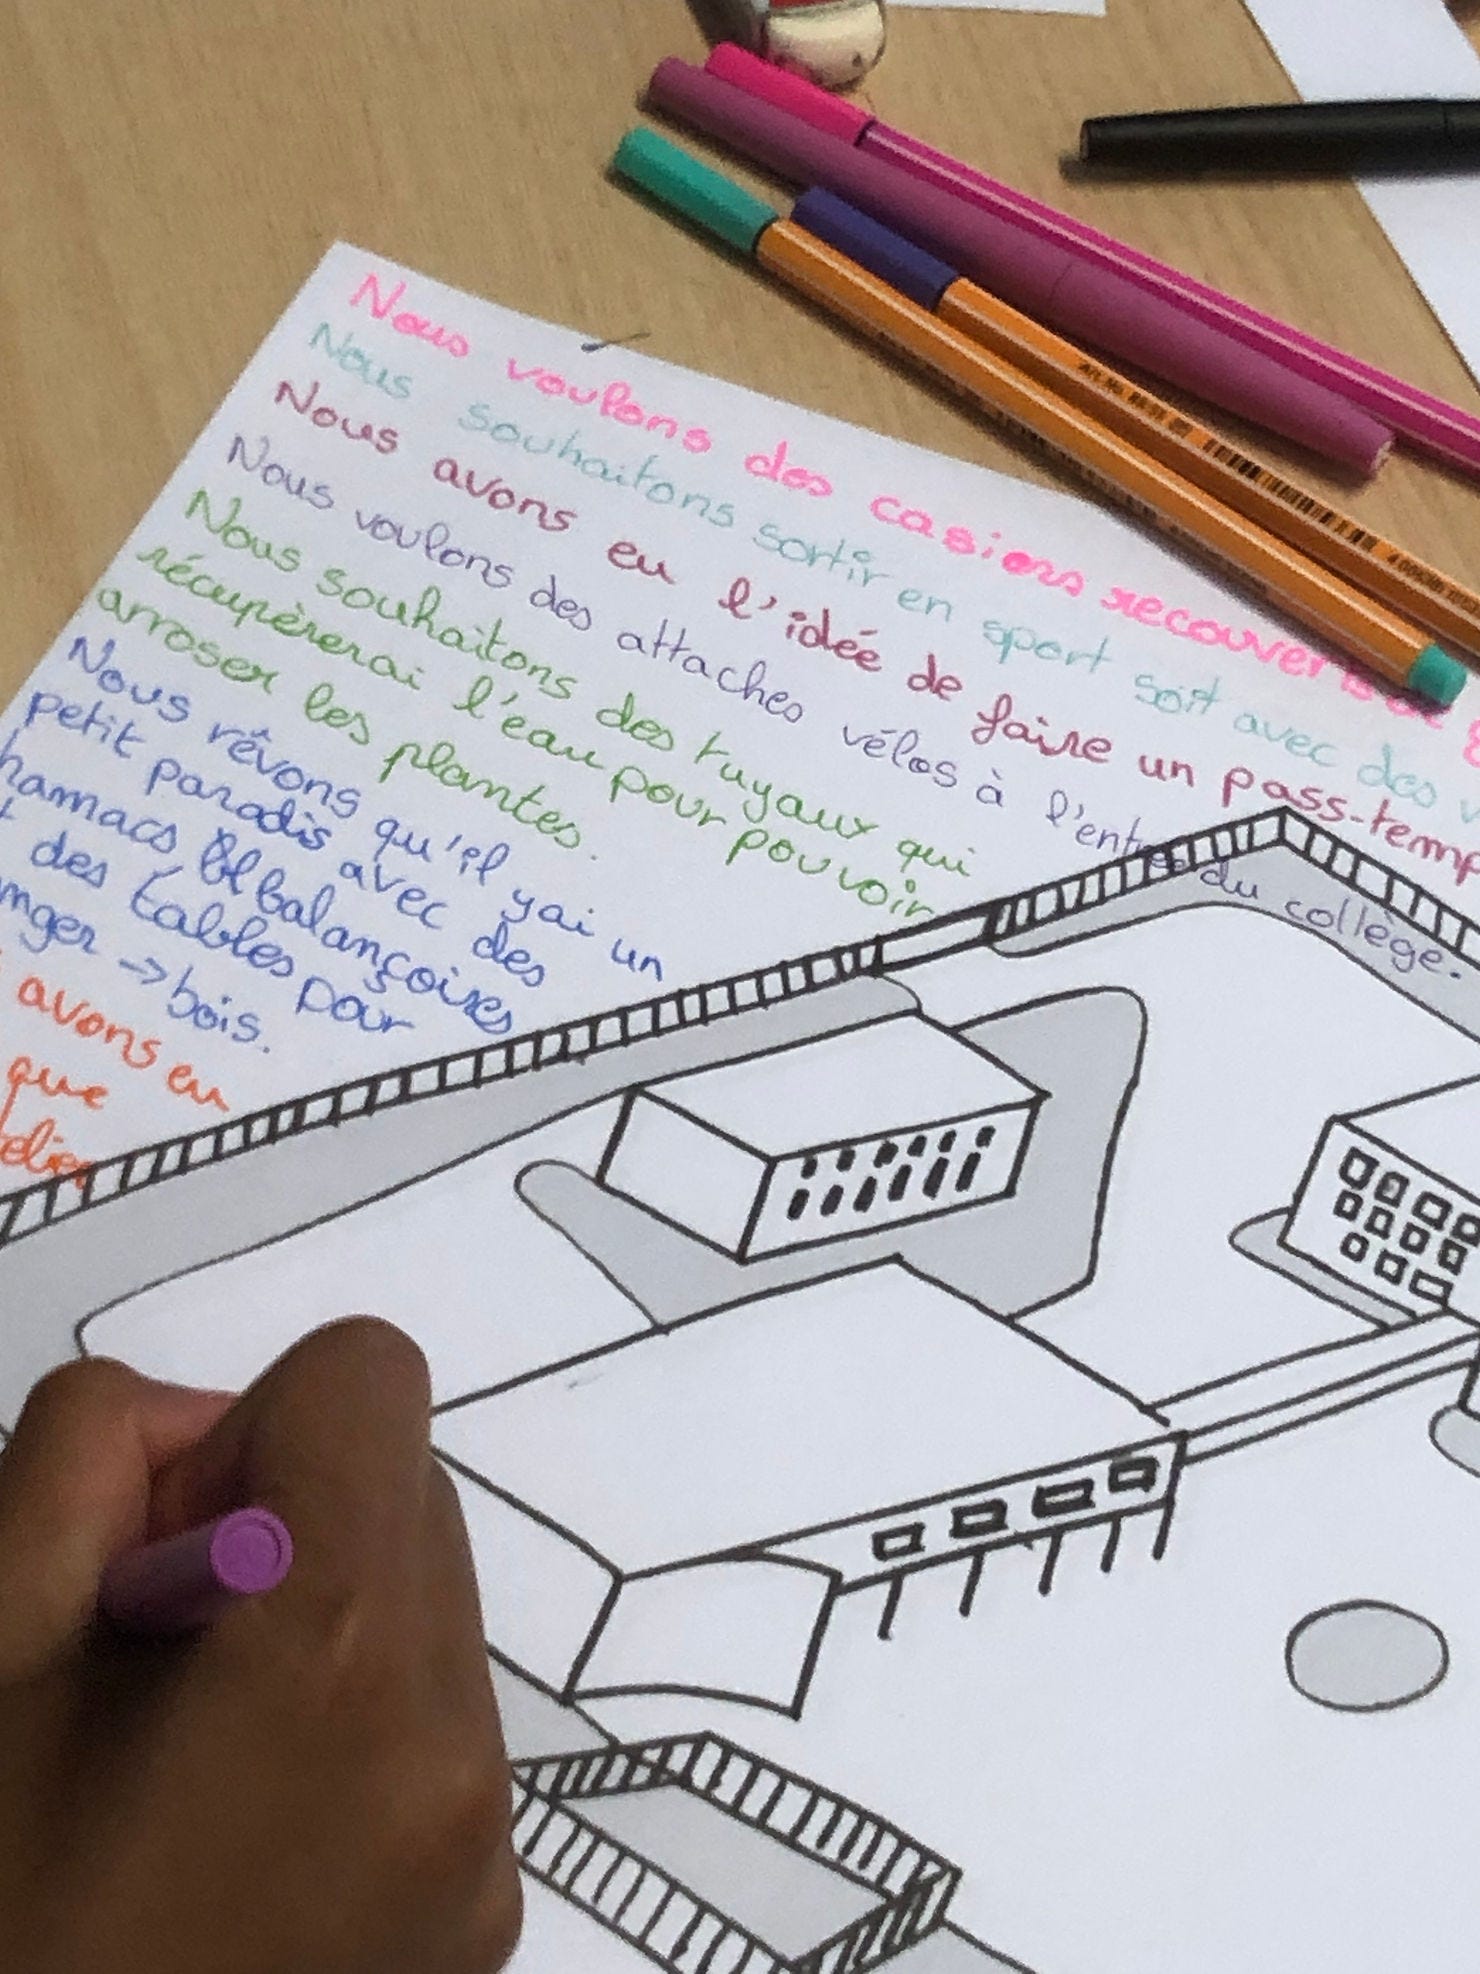 Nous voulons des casiers recouverts de
Nous souhaitons sortir en sport soit avec des
Nous avons eu l'idée de faire un pass-temp
Nous voulons des attaches vélos à l'entrée du collège.
Nous souhaitons des tuyaux qui
récupèrerai l'eau pour pouvoir
arroser les plantes.
Nous rêvons qu'il y ai un
petit paradis avec des
hamacs balançoires
des tables pour
anger → bois.
avons eu
que